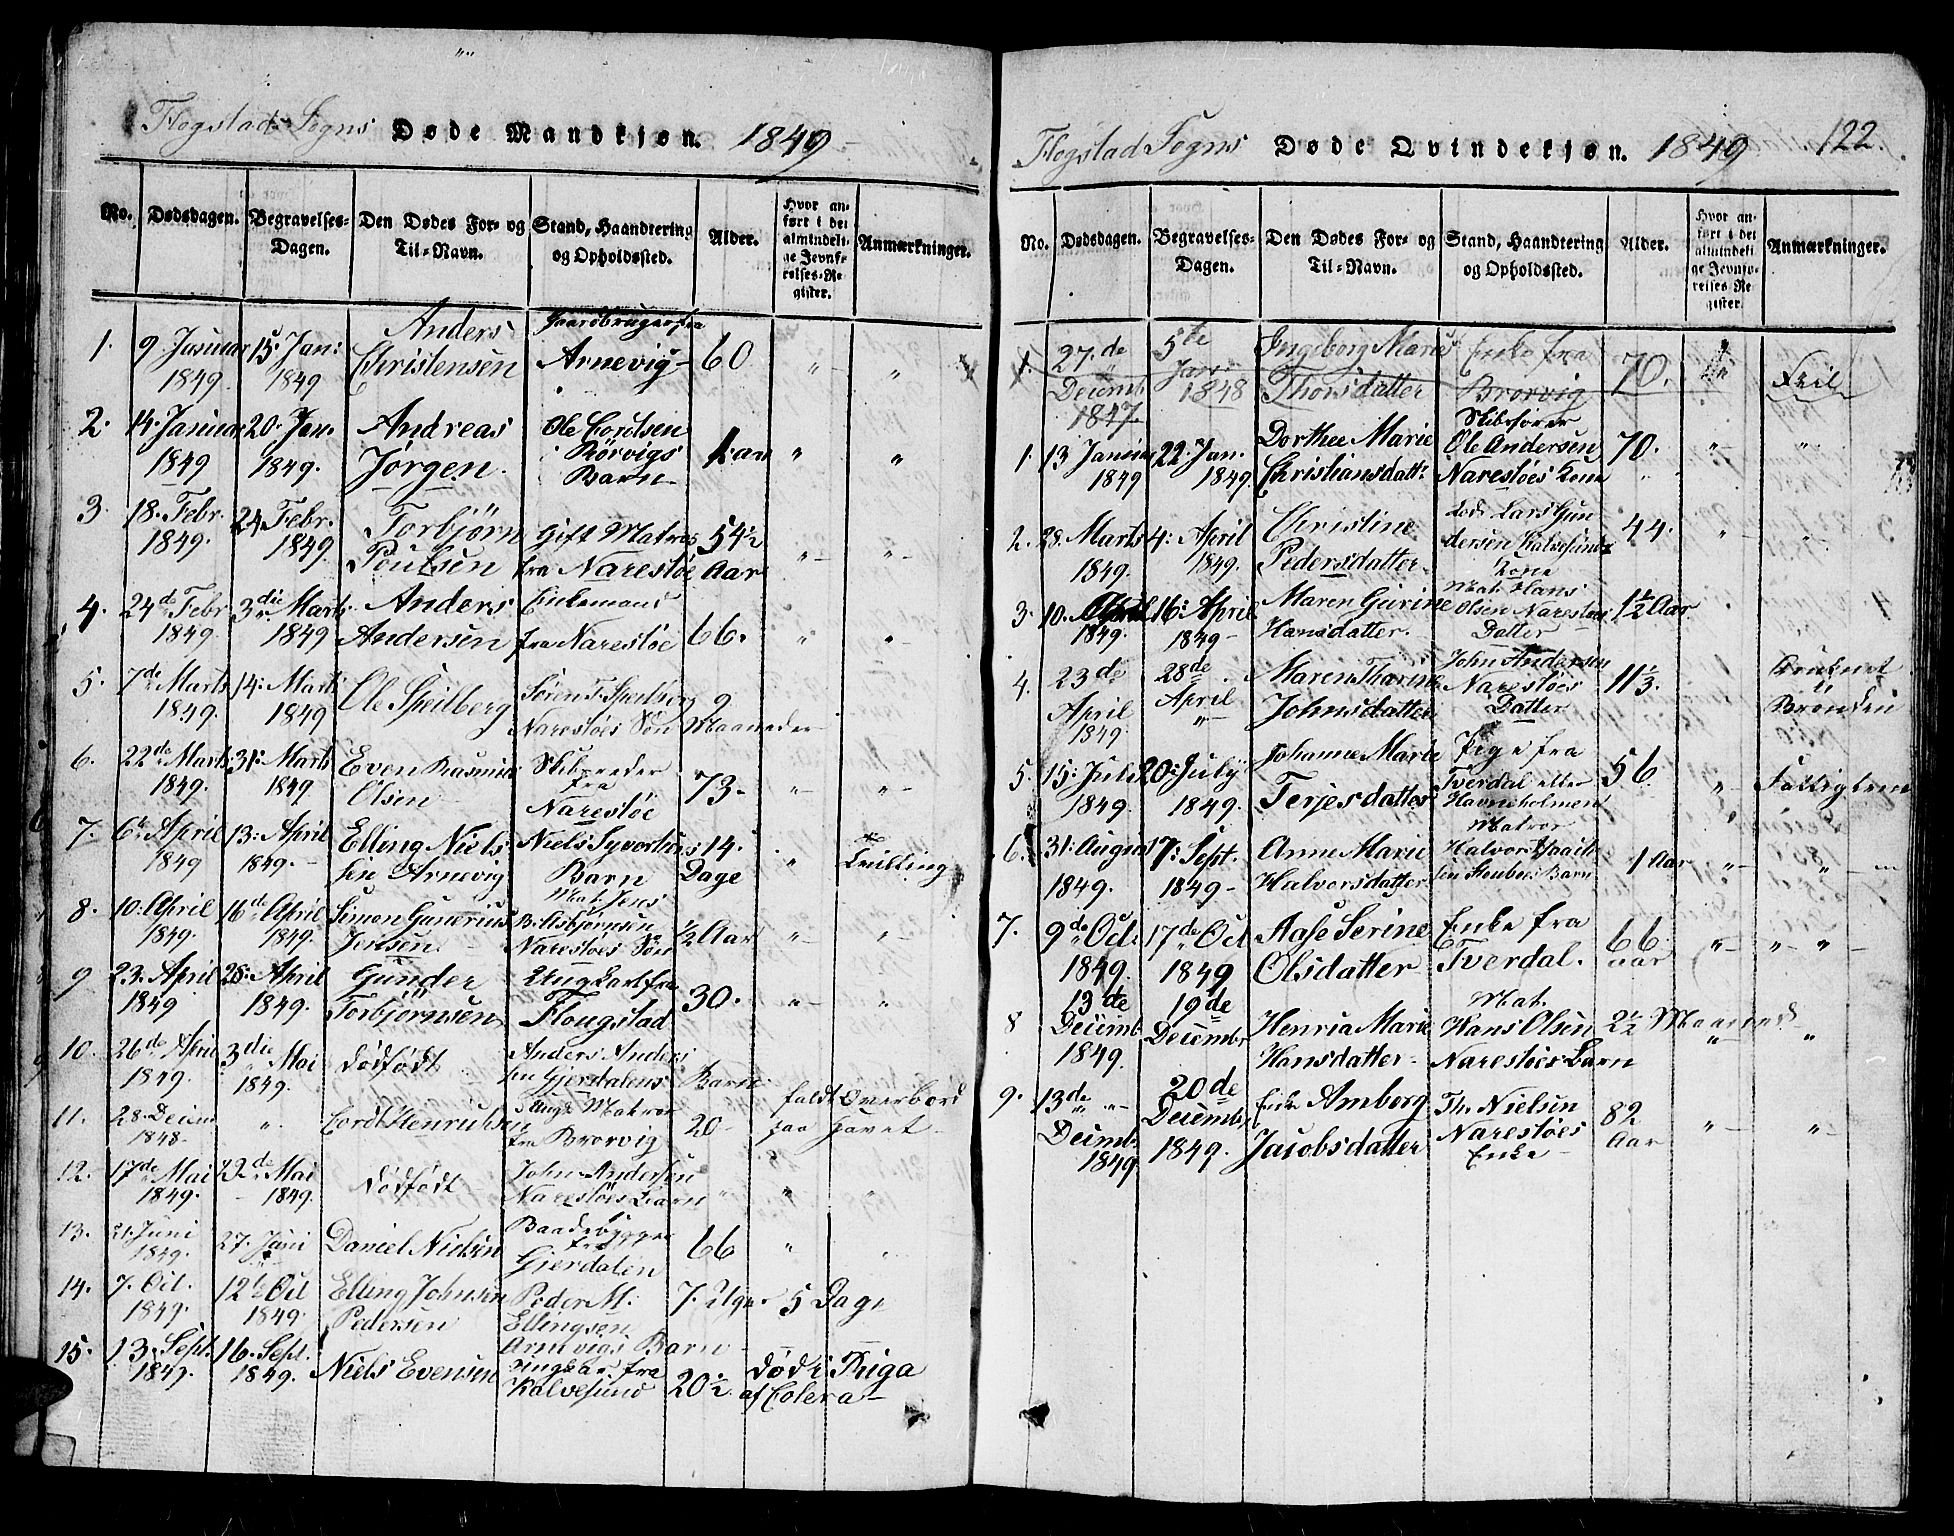 Flogstad Sogns Døde Mandkjøn. 1849
No. Dødsdagen. Begravelses-Dagen. Den Dødes For- og Til-Navn. Stand, Haandtering og Opholdssted. Alder. Hvor anført i det almindelige Jevnførelses-Register. Anmærkninger.
1. 9 Januar 1849. 15: Jan: 1849 Anders Christensen Gaardbruger fra Arnevig 60 " "
2. 14. Januar 1849 20. Jan. 1849. Andreas Jørgen. Ole Cordtsen Rørvigs Barn 1. aar " "
3. 18. Febr. 1849. 24. Febr. 1849 Torbjørn Poulsen Gift Matros fra Narestøe 54½ Aar " "
4. 24de Febr 1849. 3die Marts 1849 Anders Andersen Enkemand fra Narestøe 66. " "
5. 7de Marts 1849. 14: Marts 1849 Ole Speilberg Søren T. Speilberg Narestøes Søn 9 Maaneder
6. 22de Marts 1849. 31: Marts 1849 Even Rasmus Olsen Skibsreder fra Narestøe 73. " "
7. 6te April 1849 13: April 1849. Elling Nielssen Arnevig Niels Syvertsens Barn 14. Dage " Tvilling
8. 10: April 1849. 16de April 1849. Simon Gunerius Jensen Mat. Jens B. Asbjørnsen Narestøes Søn ½ Aar " "
9 23. April 1849 28: April 1849. Gunder Torbjørnsen Ung Karl fra Flougstad 30. " "
10. 26de April 1849. 3die Mai 1849. Dødfødt Anders Anderssen Gjerdalens Barn
11. 28. Decem 1848. " Cordt Henriksen Ungk Matros fra Brorvig 20 faldt Overbord paa Havet
12. 17de Mai 1849. 22de Mai 1849. Dødfødt John Andersen Narestøes Barn " " "
13. 21. Juni 1849. 27. Juni Daniel Nielsen Baadebygger fra Gjerdalen 66 " "
14. 7. Oct. 1849. 12te Oct 1849. Elling Johnsen Pedersen Peder M. Ellingsen Arnevigs Barn 7. Uger 5 Dage
15. 13. Sept. 1849. 16. Sept. 1849. Niels Evensen Ungkar. fra Kalvesund 20½. Død i Riga af Colera
Flogstad Sogns Døde Qvindekjøn. 1849 122.
No. Dødsdagen. Begravelses-Dagen. Den Dødes For- og Til-Navn. Stand, Haandtering og Opholdssted. Alder. Hvor anført i det almindelige Jevnførelses-Register. Anmærkninger.
1. 27.de Decemb 1847. 5te Jan 1848 Ingeborg Marie Thorsdatter Enke fra Brorvig 70. " Feil
1. 13 Januar 1849 22: Jan. 1849. Dorthee Marie Christiansdatt: Skibsfører Ole Andersen Narestøes Kone 70. " "
2. 28. Marts 1849. 4: April 1849. Christine Pedersdatter. Lods Lars Gundersen Kalvesunds Kone 44. " "
3. 10. April 1849. 16: April 1849 Maren Gurine Hansdatter. Mat. Hans Olsen Narestøes Datter 1½ Aar
4. 23de April 1849 28de April " Maren Tharine Johnsdatter John Andersen Narestøes Datter 11⅓. Druknet i Brønden
5. 15: Juli 1849. 20: July 1849. Johanne Marie Terjesdatter Pige fra Tverdal eller Havneholmen 56 " Fattiglem
6. 31: August 1849. 17: Sept. 1849 Anne Marie Halvorsdatter Matros Halvor Staubøes Barn 1 Aar " "
7. 9de Oct: 1849. 17de Oct 1849 Aase Serine Olsdatter Enke fra Tverdal. 66 aar " " "
8 13de Decemb. 1849. 19de Decembr Henria Marie Hansdatter Mat. Hans Olsen Narestøes Barn 2½ Maaned " "
9. 13de " Decemb. 1849. 20de Decemb 1849. Enke Amborg Jacobsdatter Th. Nielsen Narestøes Enke 82 Aar " "